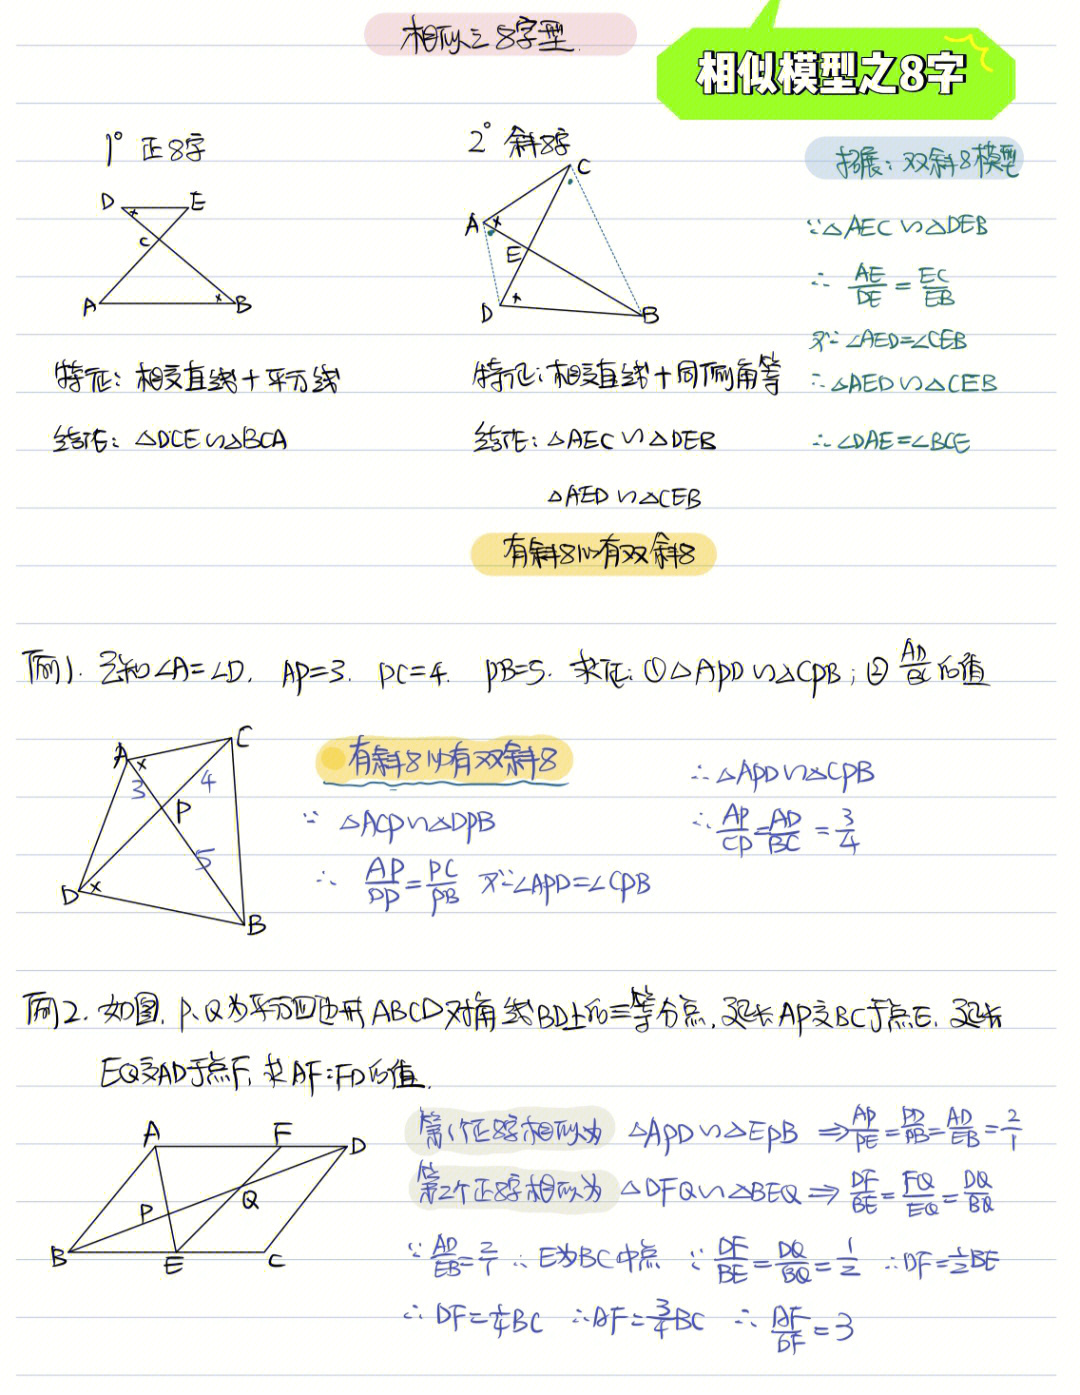 相似之8字型.
相似模型之8字
1° 正8字
D E
C
A B
特征: 相交直线+平行线
结论: △DCE∽△BCA
2° 斜8字
C
A
E
D
B
特征: 相交直线+同侧角等
结论: △AEC∽△DEB
△AED∽△CEB
有斜8必有双斜8
拓展: 双斜8模型
∵△AEC∽△DEB
∴ AE/DE = EC/EB
又∵∠AED=∠CEB
∴△AED∽△CEB
∴∠DAE=∠BCE
例1. 已知∠A=∠D. AP=3. PC=4. PB=5. 求证: ①△APD∽△CPB; ② AD/BC的值
A C
3 4
P
5
D
B
有斜8必有双斜8
∵ △ACP∽△DPB
∴ AP/DP = PC/PB 又∵∠APD=∠CPB
∴△APD∽△CPB
∴ AP/CP = AD/BC = 3/4
例2. 如图, P、Q为平行四边形ABCD对角线BD上的三等分点, 延长AP交BC于点E. 延长
EQ交AD于点F, 求AF:FD的值.
A F D
P Q
B E C
第1个正8字相似为 △APD∽△EPB ⇒ AP/PE = PD/PB = AD/EB = 2/1
第2个正8字相似为 △DFQ∽△BEQ ⇒ DF/BE = FQ/EQ = DQ/BQ
∵ AD/EB = 2/1 ∴ E为BC中点 ∵ DF/BE = DQ/BQ = 1/2 ∴DF=1/2BE
∴ DF=1/4BC ∴AF=3/4BC ∴ AF/DF = 3